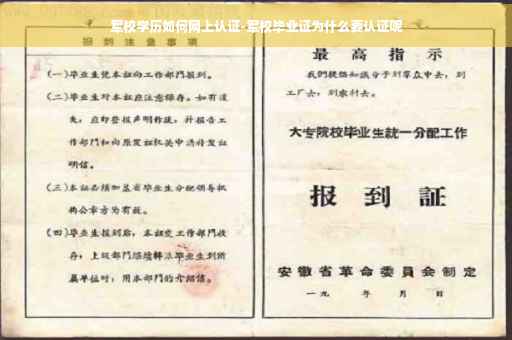 军校学历如何网上认证-军校毕业证为什么要认证呢
报到注意事项
(一)毕业生凭本证向工作部门报到。
(二)毕业生对本证应注意保存。如有遗
失,应即登报声明作废,并报告工
作部门和向原发证机关申请补发证
明信。
(三)本证必须加盖省毕业生分配领导机
构公章方为有效。
(四)毕业生报到后,本证交工作部门收
存;上级部门继续转派毕业生到所
属单位时,用本部门的介绍信。
最高指示
我们提倡知识分子到群众中去,到
工厂去,到农村去。
大专院校毕业生统一分配工作
报到证
安徽省革命委员会制定
一九 年 月 日